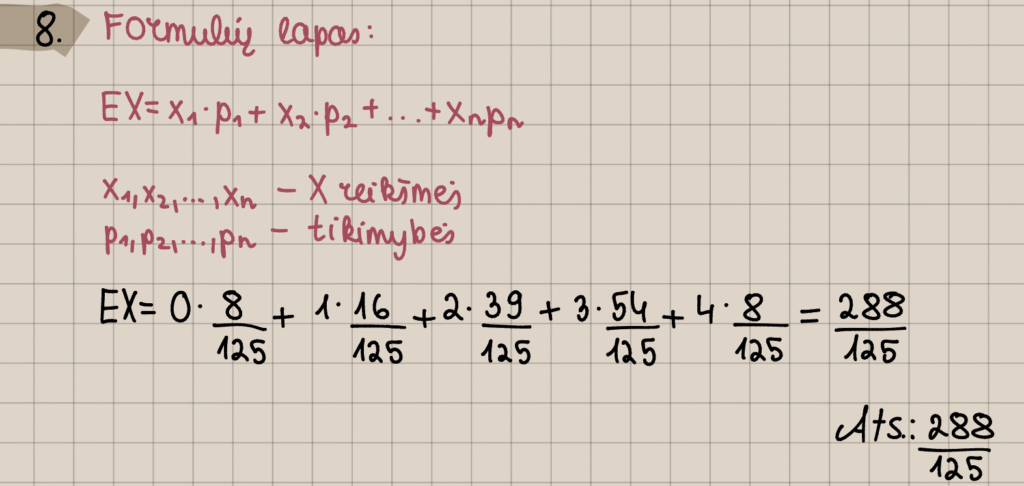 8. Formulių lapas:
EX= x₁·p₁+ x₂·p₂+...+xₙpₙ
x₁,x₂,...,xₙ – X reikšmės
p₁,p₂,...,pₙ – tikimybės
EX= 0·8/125 + 1·16/125 + 2·39/125 + 3·54/125 + 4·8/125 = 288/125
Ats.: 288/125